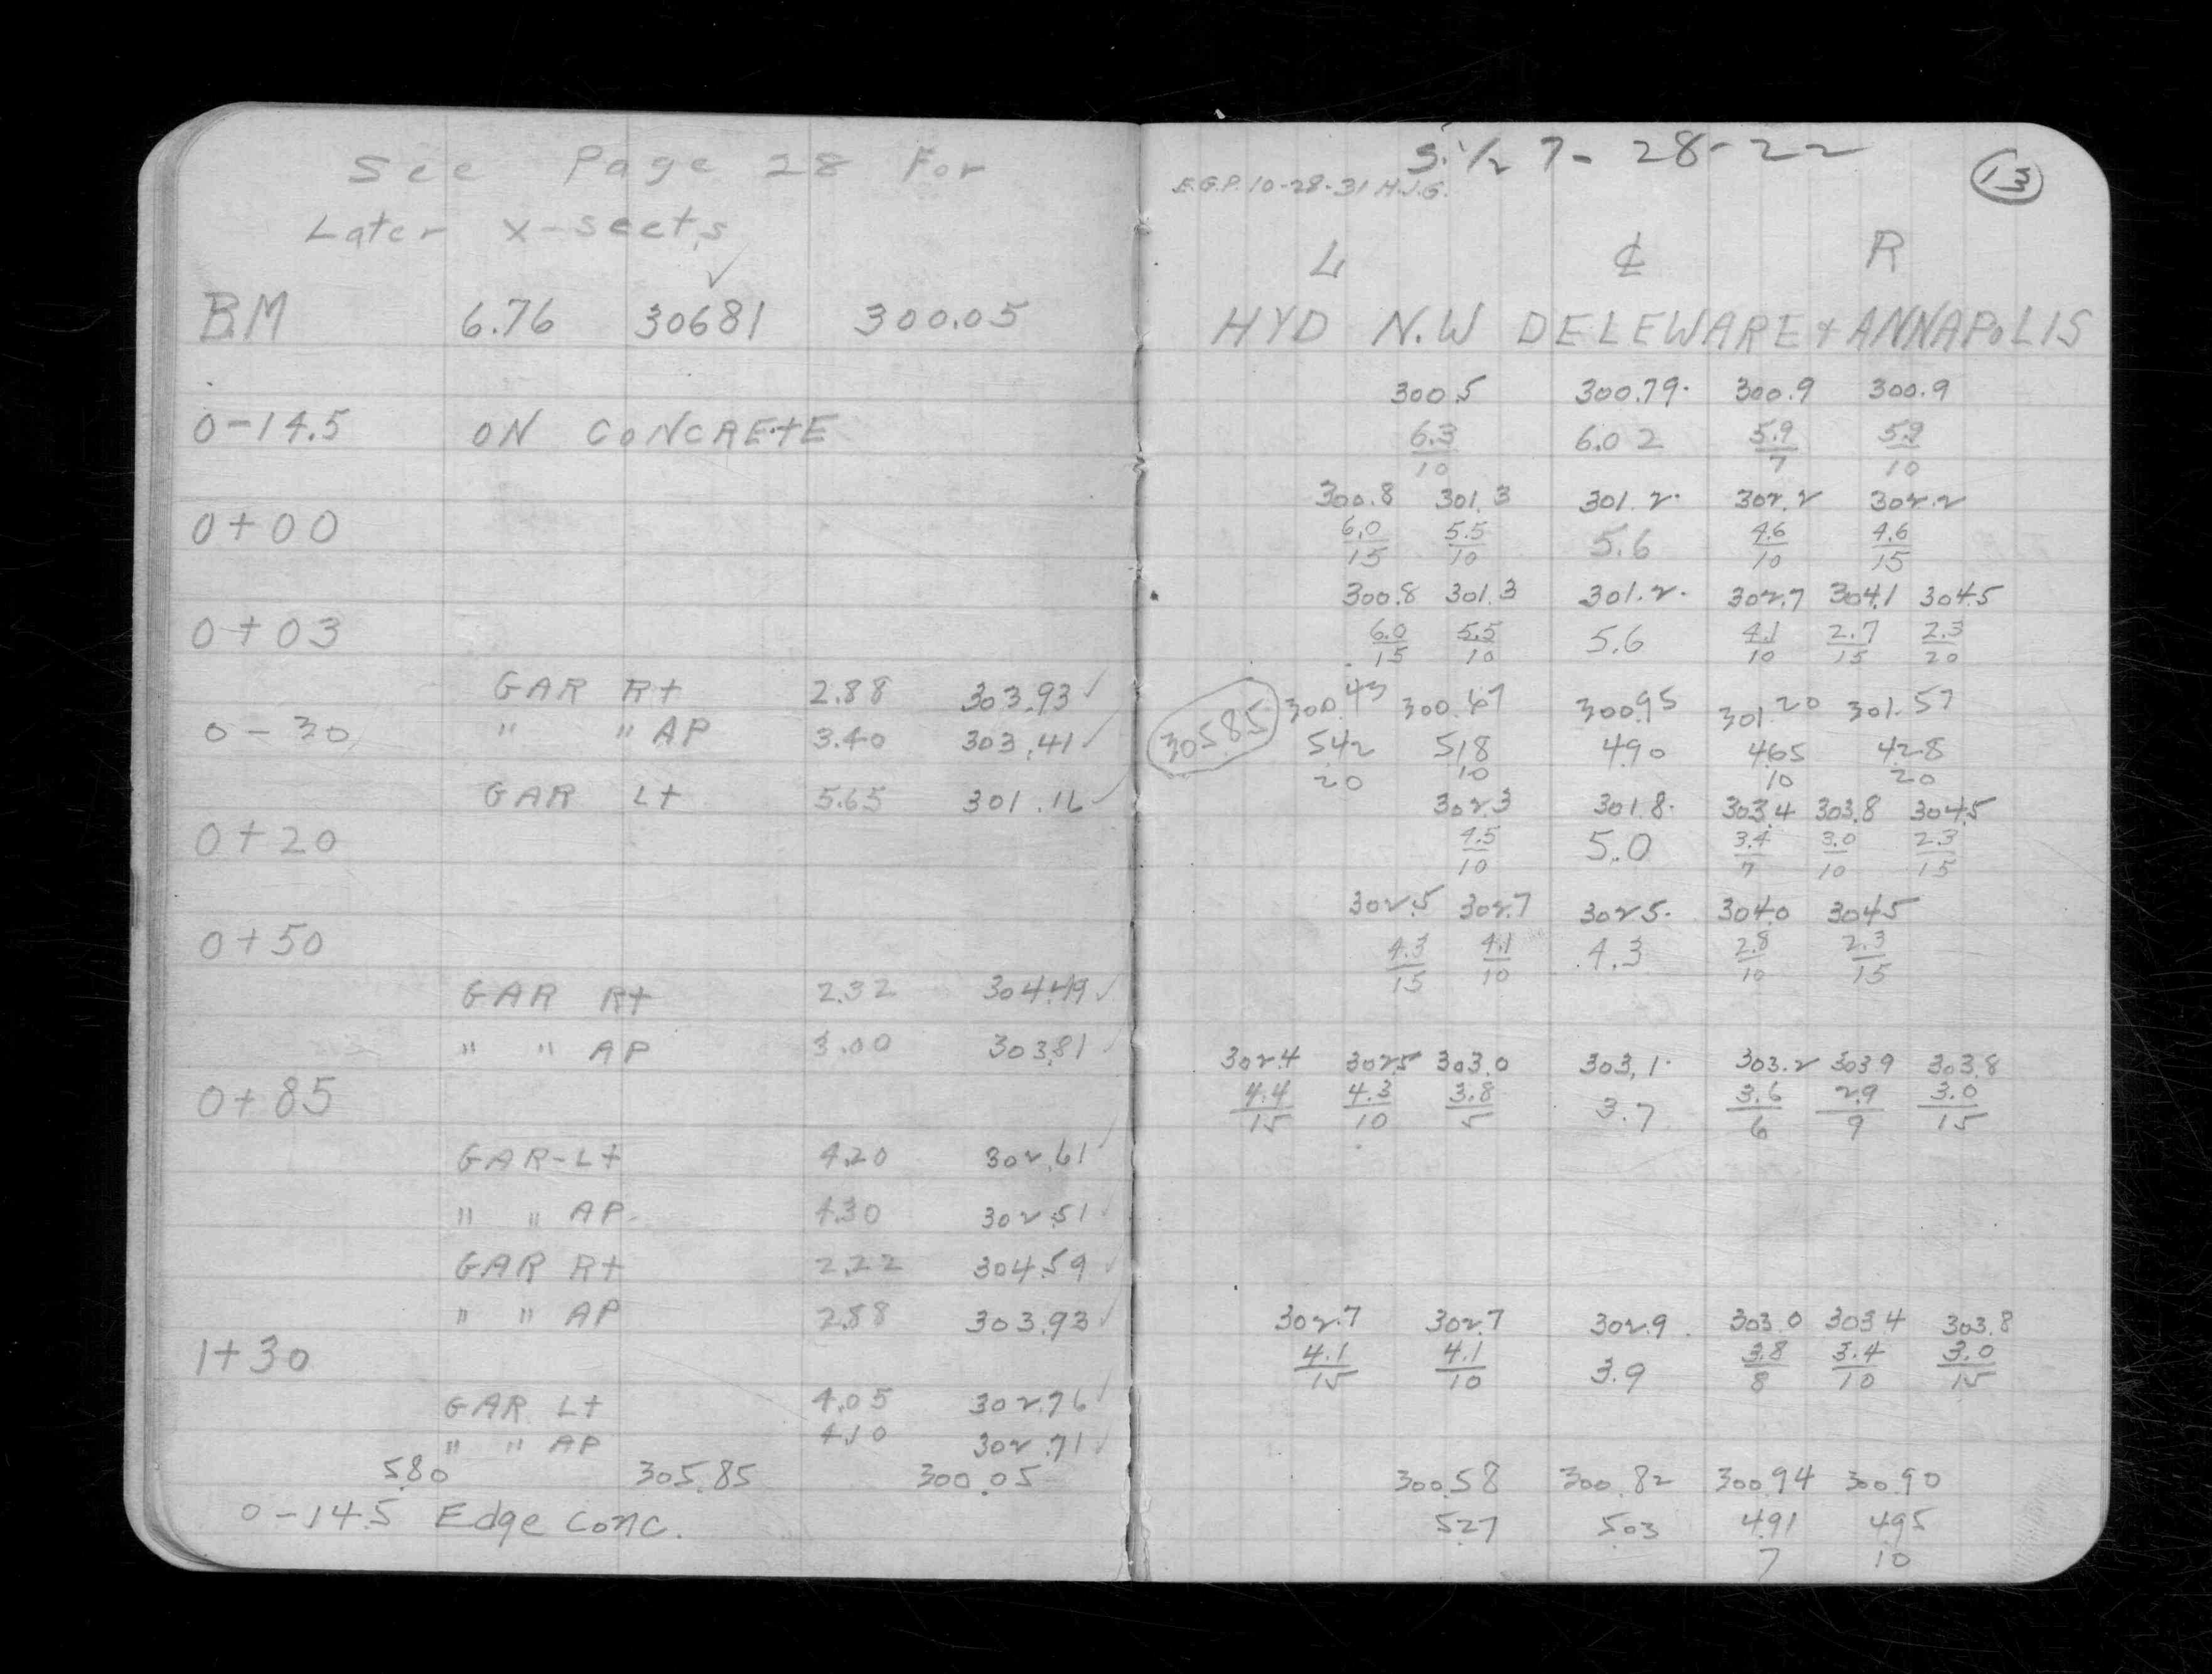 See Page 28 For
Later X-sects
✓
BM 6.76 30681 300.05
0-14.5 ON CONCRETE
0+00
0+03
GAR Rt 2.88 303.93 ✓
0-30 " " AP 3.40 303.41 ✓
GAR Lt 5.65 301.16 ✓
0+20
0+50
GAR Rt 2.32 304.49 ✓
" " AP 3.00 303.81 ✓
0+85
GAR-Lt 4.20 302.61 ✓
" " AP. 4.30 302.51 ✓
GAR Rt 2.22 304.59 ✓
" " AP 2.88 303.93 ✓
1+30
GAR Lt 4.05 302.76 ✓
" " AP 4.10 302.71 ✓
5.80 305.85 300.05
0-14.5 Edge Conc.
S.1/2 7-28-22 13
E.G.P. 10-28-31 H.J.G.
L ℄ R
HYD N.W DELEWARE + ANNAPOLIS
300.5 300.79. 300.9 300.9
6.3 6.02 5.9 5.9
10 7 10
300.8 301.3 301.2. 302.2 302.2
6.0 5.5 5.6 4.6 4.6
15 10 10 15
300.8 301.3 301.2. 302.7 304.1 304.5
6.0 5.5 5.6 4.1 2.7 2.3
15 10 10 15 20
305.85 300.43 300.67 300.95 301.20 301.57
542 518 490 465 428
20 10 10 20
302.3 301.8. 303.4 303.8 304.5
4.5 5.0 3.4 3.0 2.3
10 7 10 15
302.5 302.7 302.5. 304.0 304.5
4.3 4.1 4.3 2.8 2.3
15 10 10 15
302.4 302.5 303.0 303.1. 303.2 303.9 303.8
4.4 4.3 3.8 3.7 3.6 2.9 3.0
15 10 5 6 9 15
302.7 302.7 302.9. 303.0 303.4 303.8
4.1 4.1 3.9 3.8 3.4 3.0
15 10 8 10 15
300.58 300.82 300.94 300.90
527 503 491 495
7 10